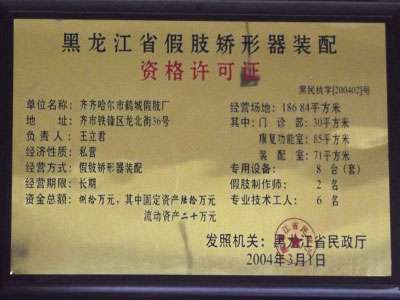 黑龙江省假肢矫形器装配
资格许可证
黑民技字[200402]号
单位名称: 齐齐哈尔市鹤城假肢厂
地 址: 齐市铁锋区龙北街36号
负 责 人: 王立君
经济性质: 私营
经营方式: 假肢矫形器装配
经营期限: 长期
资金总额: 捌拾万元 其中固定资产陆拾万元
流动资产二十万元
经营场地: 186 84平方米
其中: 门 诊 部: 30平方米
康复功能室: 85平方米
装 配 室: 71平方米
专用设备: 8 台(套)
假肢制作师: 2 名
专业技术工人: 6 名
发照机关: 黑龙江省民政厅
2004年3月1日